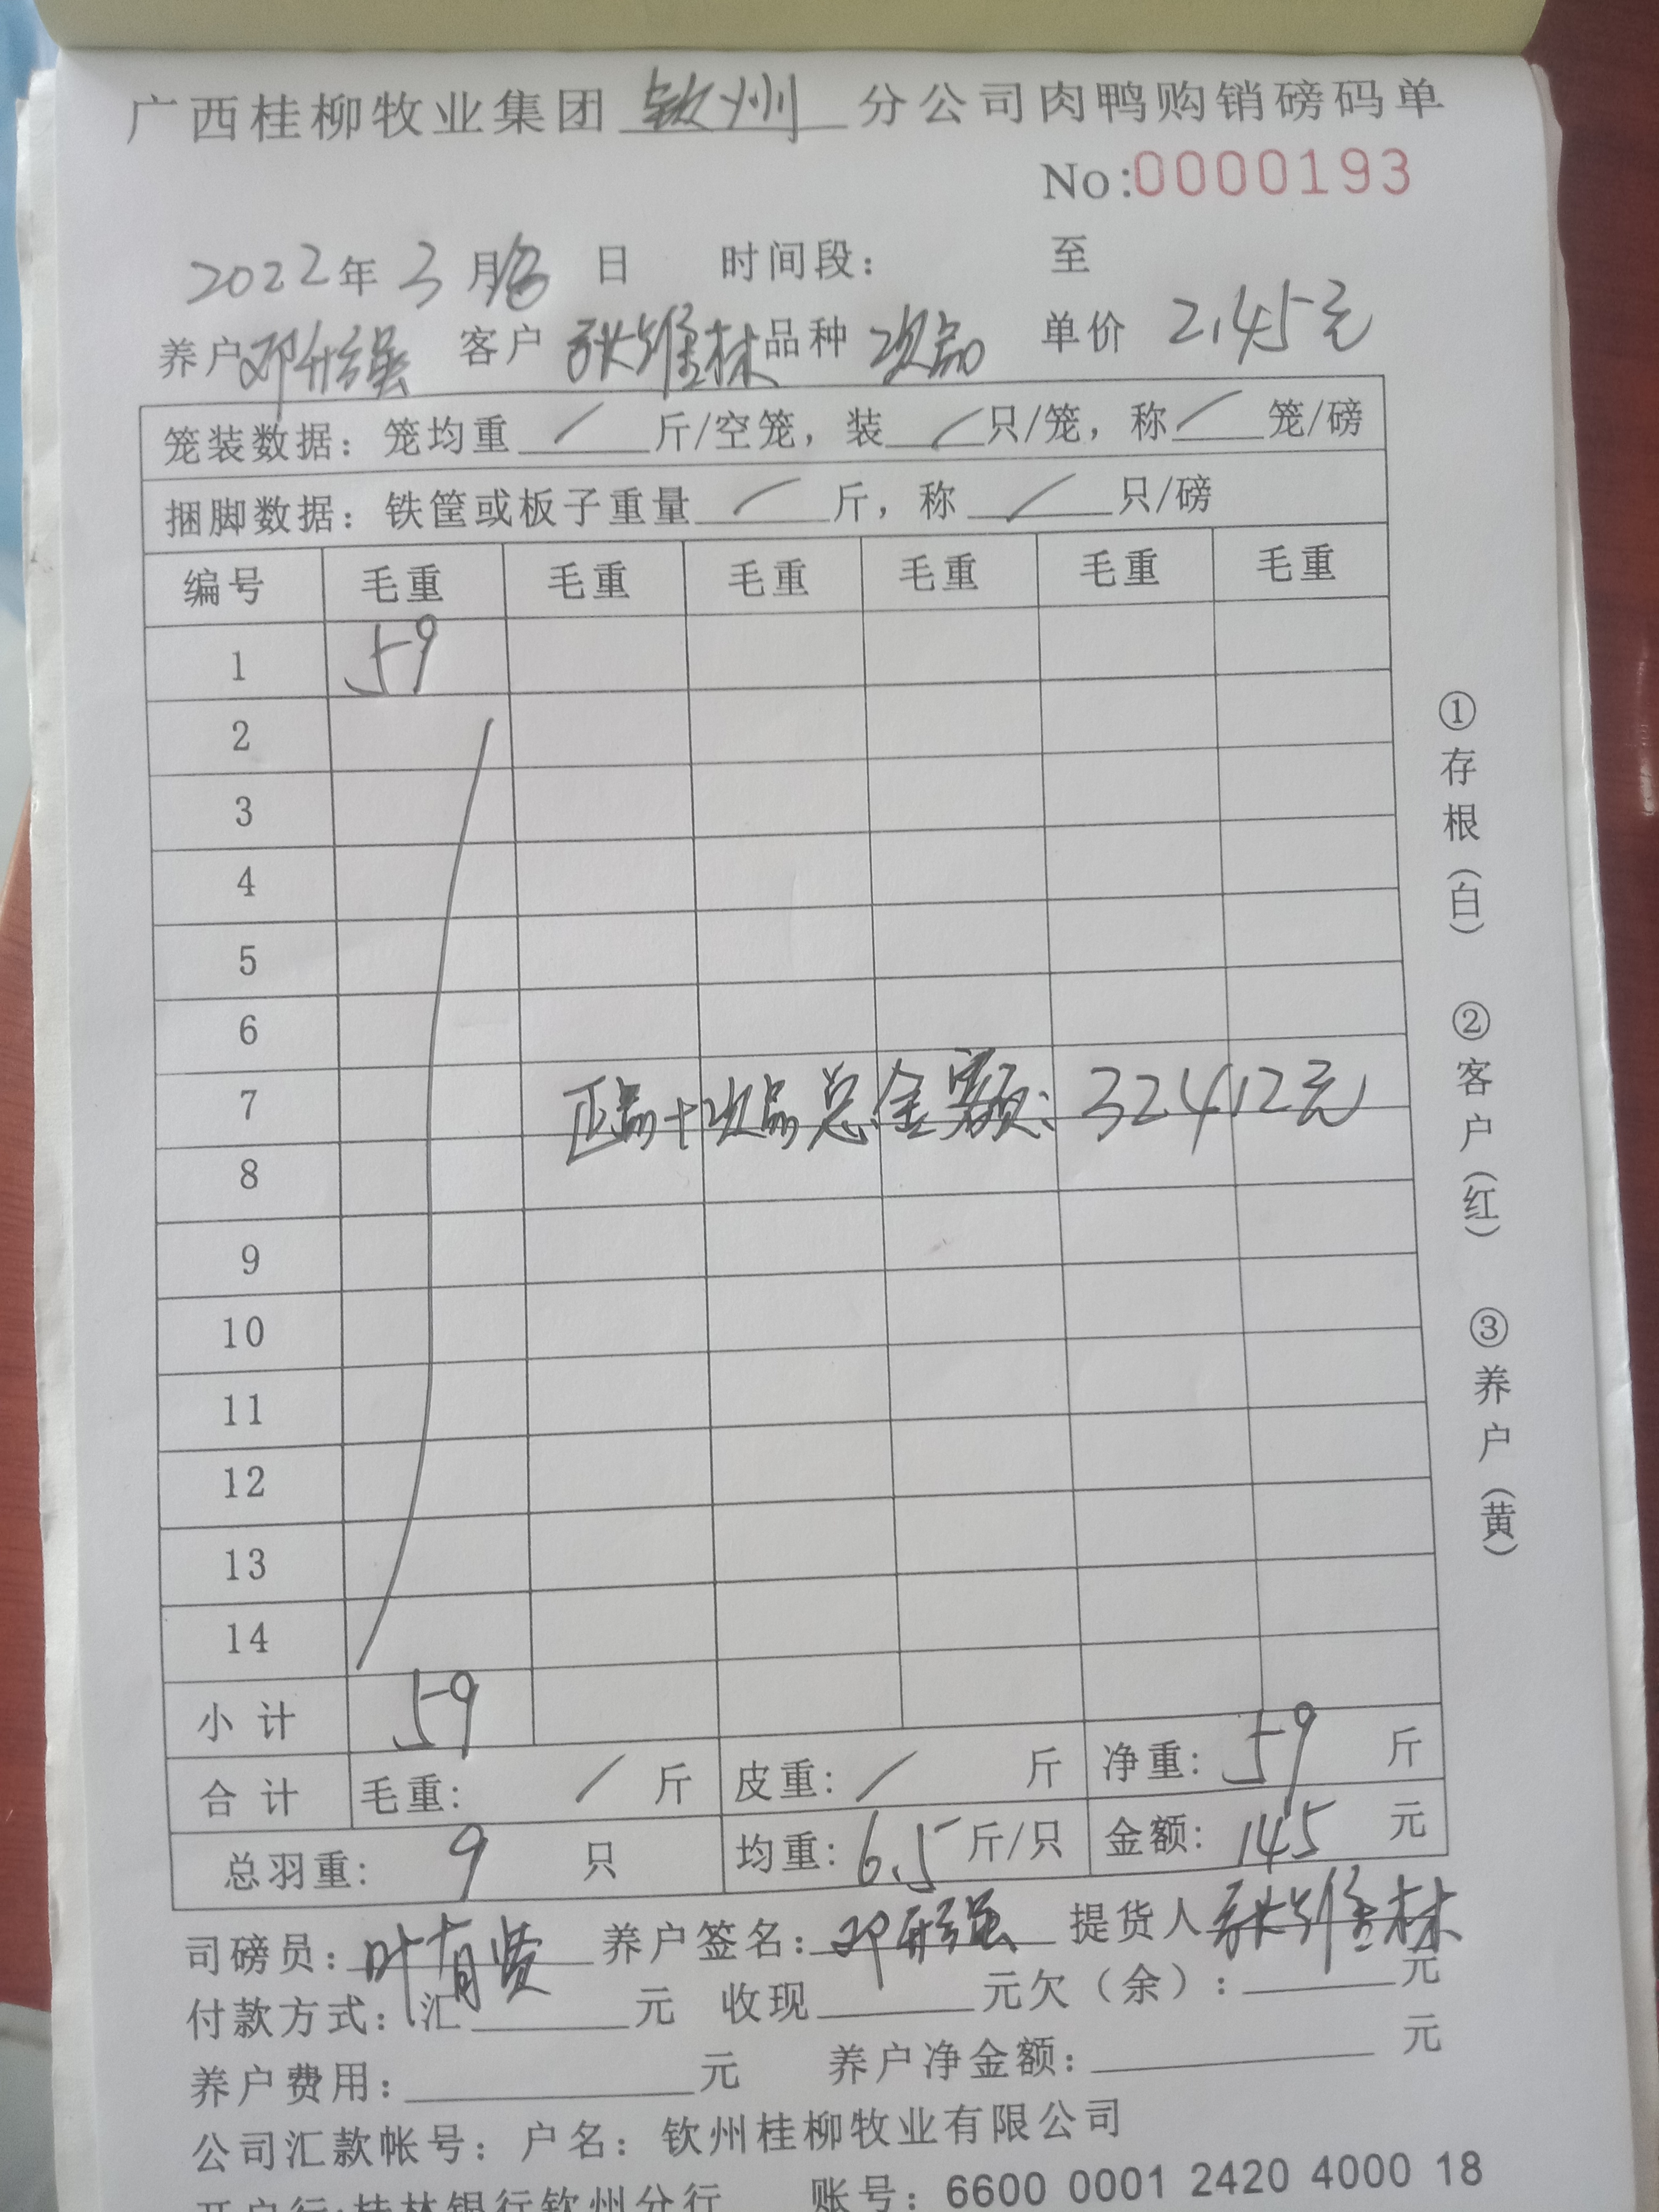 广西桂柳牧业集团 钦州 分公司肉鸭购销磅码单
No:0000193
2022年 3 月 日 时间段: 至
养户 邓彤强 客户 耿维林 品种 次品 单价 2.45元
笼装数据: 笼均重 / 斤/空笼, 装 / 只/笼, 称 / 笼/磅
捆脚数据: 铁筐或板子重量 / 斤, 称 / 只/磅
编号 毛重 毛重 毛重 毛重 毛重 毛重
1 59
2
3
4
5
6
7 正品+次品总金额: 32412元
8
9
10
11
12
13
14
小 计 59
合 计 毛重: / 斤 皮重: / 斤 净重: 59 斤
总羽重: 9 只 均重: 6.5 斤/只 金额: 145 元
司磅员: 叶有贤 养户签名: 邓彤强 提货人 耿维林
付款方式: 汇 元 收现 元欠(余): 元
养户费用: 元 养户净金额: 元
公司汇款帐号: 户名: 钦州桂柳牧业有限公司
开户行:桂林银行钦州分行 账号: 6600 0001 2420 4000 18
①存根(白) ②客户(红) ③养户(黄)